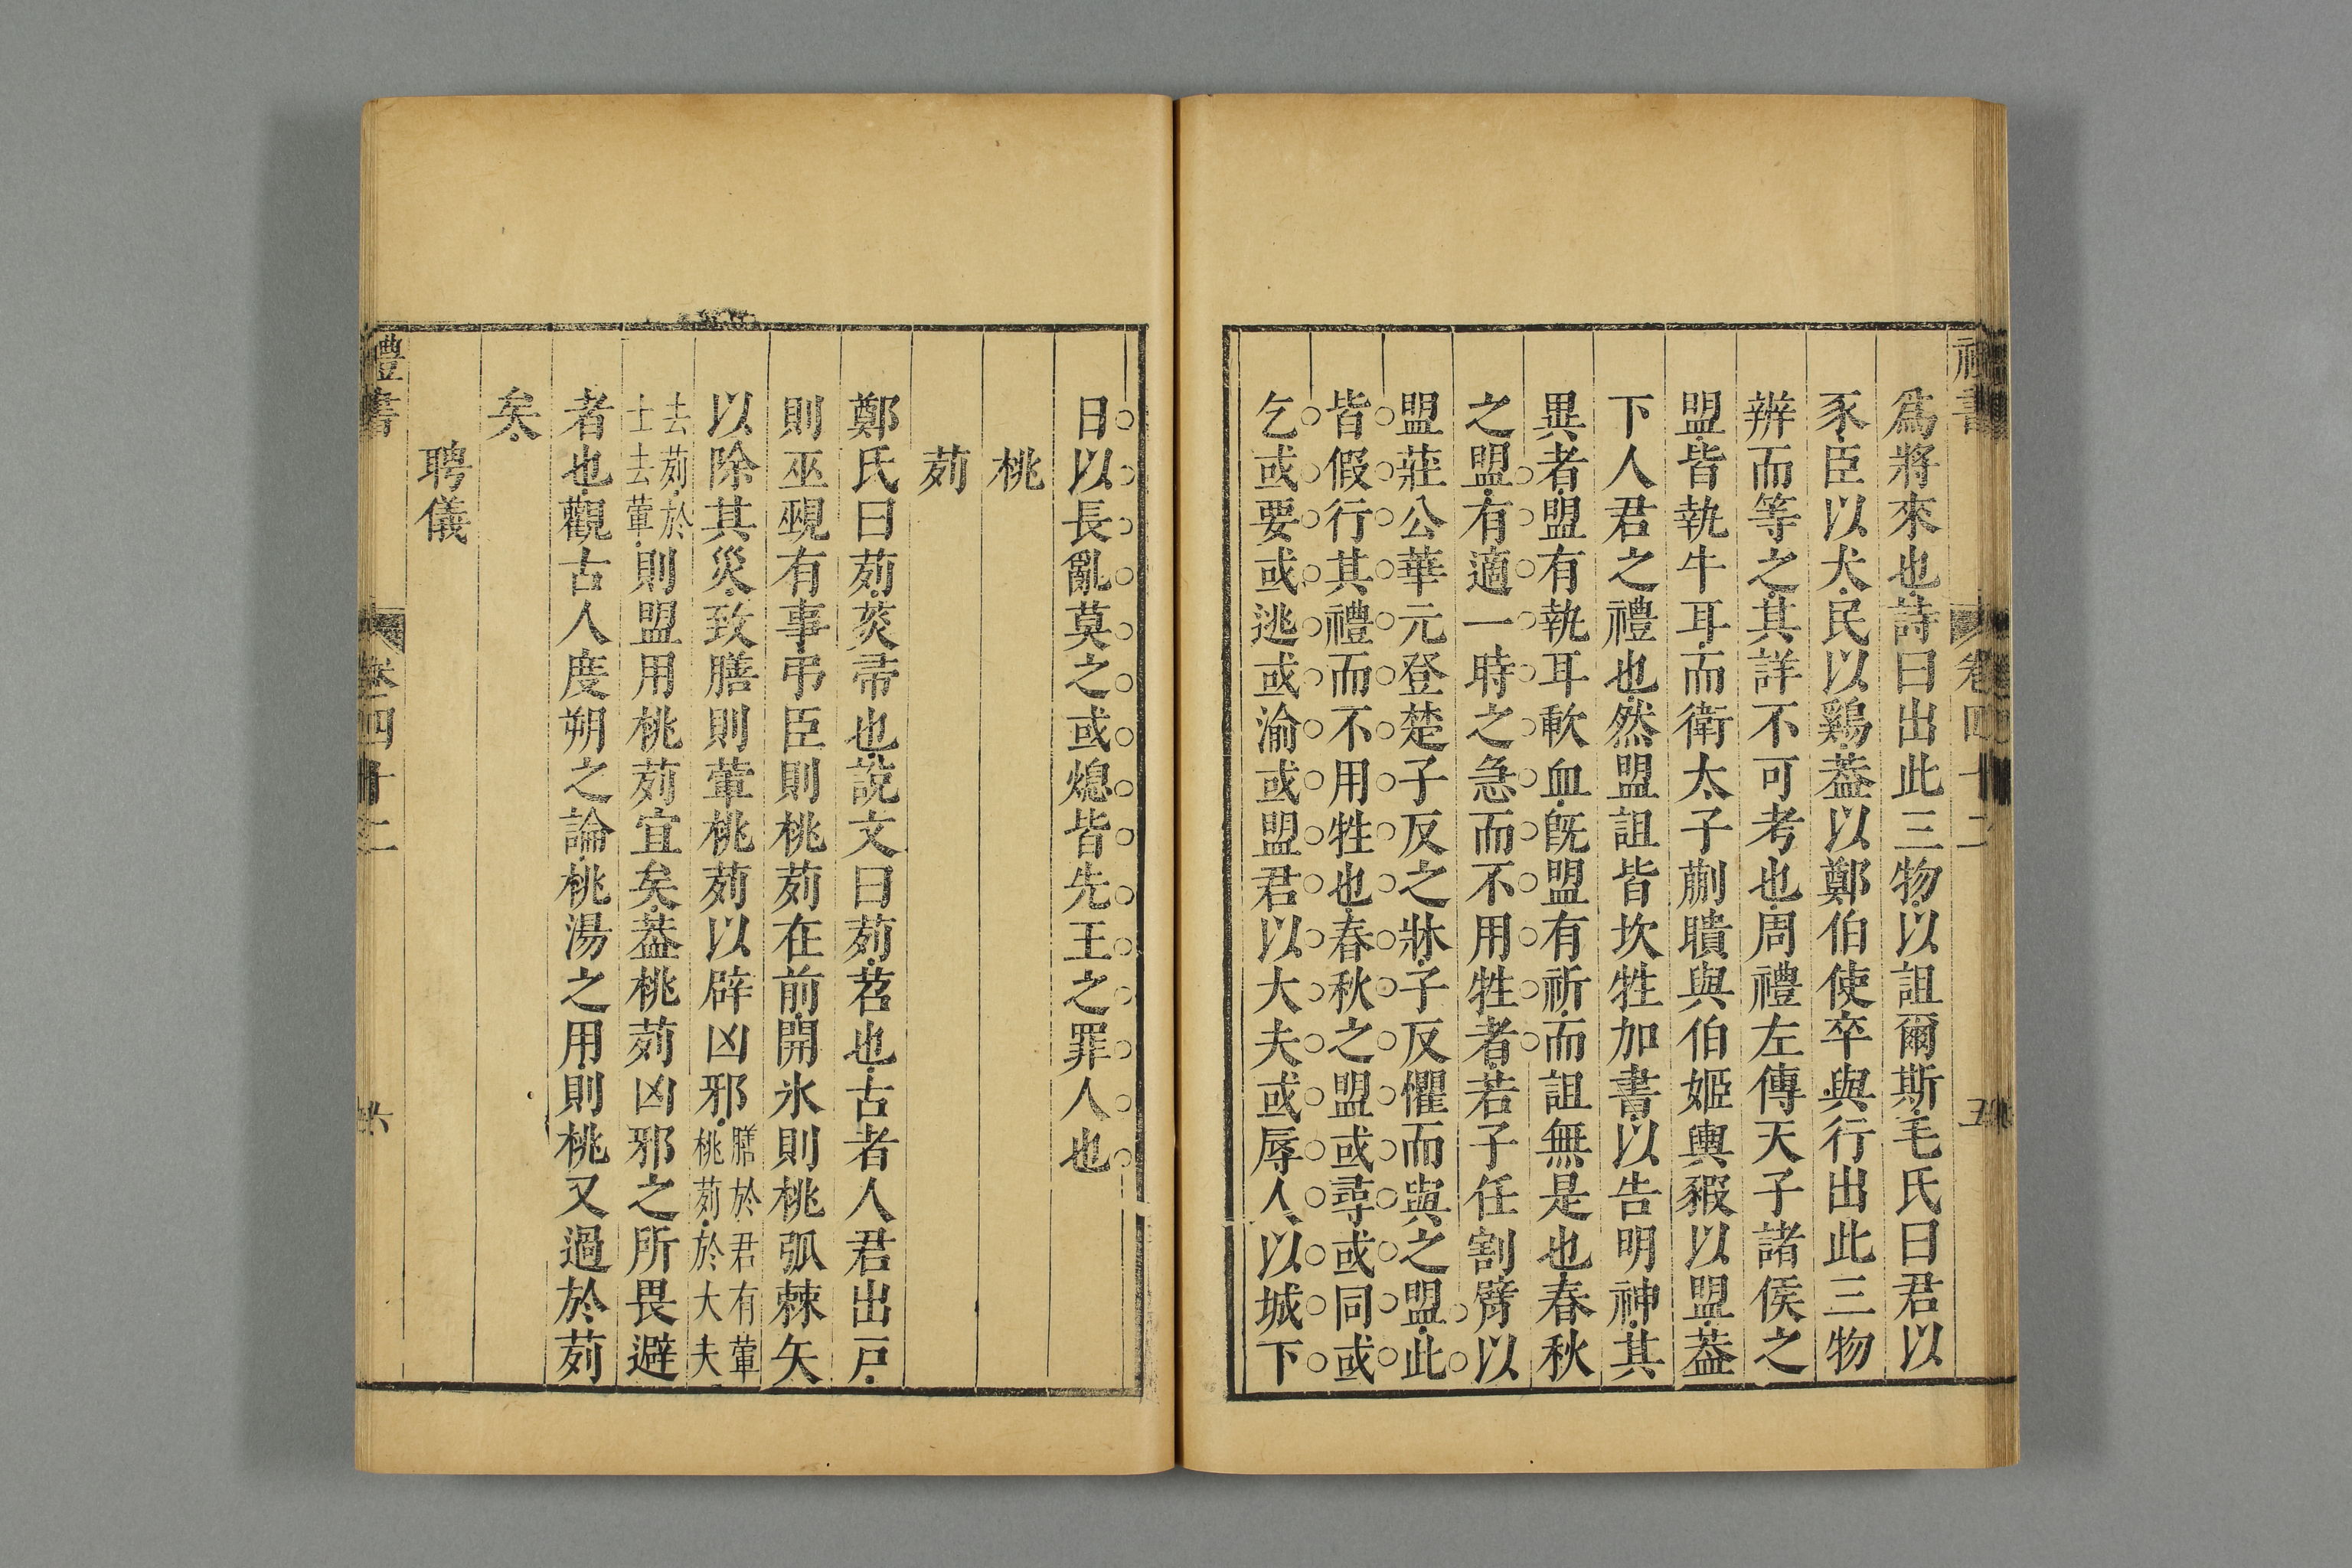 禮書 卷四十二 五
爲將來也詩曰出此三物以詛爾斯毛氏曰君以
豕臣以犬民以鷄葢以鄭伯使卒與行出此三物
辨而等之其詳不可考也周禮左傳天子諸侯之
盟皆執牛耳而衛太子蒯聵與伯姬輿豭以盟葢
下人君之禮也然盟詛皆坎牲加書以告明神其
異者盟有執耳歃血旣盟有祈而詛無是也春秋
之盟有適一時之急而不用牲者若子任割臂以
盟莊公華元登楚子反之牀子反懼而與之盟此
皆假行其禮而不用牲也春秋之盟或尋或同或
乞或要或逃或渝或盟君以大夫或辱人以城下
日以長亂莫之或熄皆先王之罪人也
桃
茢
鄭氏曰茢菼帚也說文曰茢苕也古者人君出戸
則巫覡有事弔臣則桃茢在前開氷則桃弧棘矢
以除其災致膳則葷桃茢以辟凶邪膳於君有葷桃茢於大夫
去茢於士去葷則盟用桃茢宜矣葢桃茢凶邪之所畏避
者也觀古人度朔之論桃湯之用則桃又過於茢
矣
聘儀
禮書 卷四十二 六